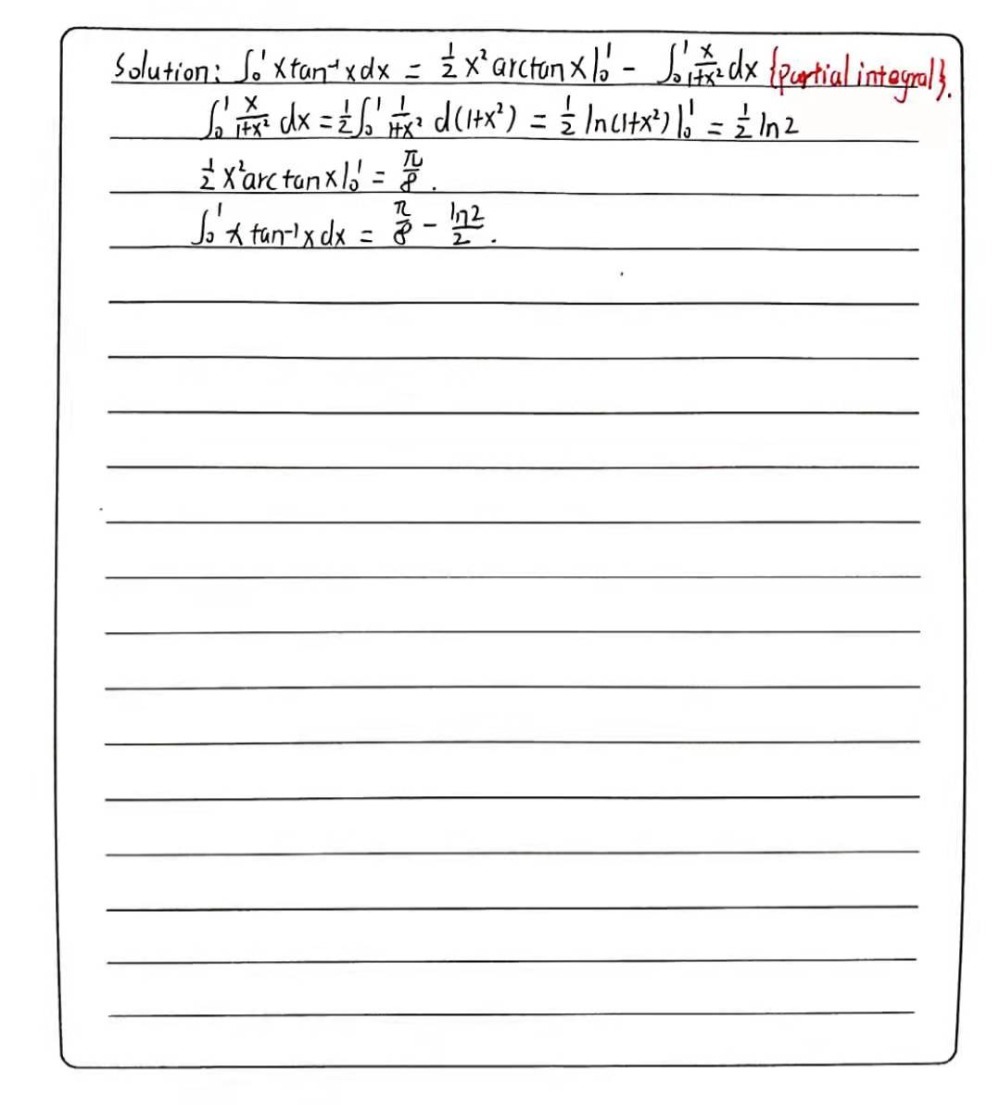 Solution: ∫₀¹ x tan⁻¹ x dx = ½ x² arctan x |₀¹ - ∫₀¹ x/(1+x²) dx {partial integral}.
∫₀¹ x/(1+x²) dx = ½ ∫₀¹ 1/(1+x²) d(1+x²) = ½ ln(1+x²) |₀¹ = ½ ln2
½ x² arctan x |₀¹ = π/8 .
∫₀¹ x tan⁻¹ x dx = π/8 - ln2/2 .